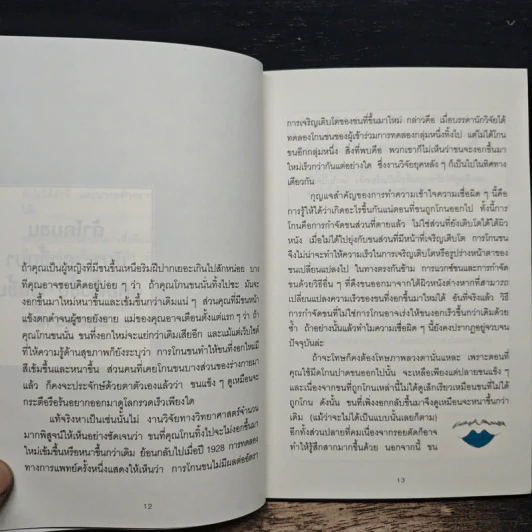 ถ้าคุณเป็นผู้หญิงที่มีขนขึ้นเหนือริมฝีปากเยอะเกินไปสักหน่อย บาง
ที่คุณอาจชอบคิดอยู่บ่อย ๆ ว่า ถ้าคุณโกนขนนั่นทิ้งไปซะ มันจะ
งอกขึ้นมาใหม่หนาขึ้นและเข้มขึ้นกว่าเดิมแน่ ๆ ส่วนคุณที่มีขนหน้า
แข้งดกดำจนผู้ชายยังอาย แม่ของคุณอาจเตือนตั้งแต่แรก ๆ ว่า ถ้า
คุณโกนขนนั่น ขนที่งอกใหม่จะแย่กว่าเดิมเสียอีก และแม้แต่เว็บไซต์
ที่ให้ความรู้ด้านสุขภาพก็ยังระบุว่า การโกนขนทำให้ขนที่งอกใหม่มี
สีเข้มขึ้นและหนาขึ้น ส่วนคนที่เคยโกนขนบางส่วนของร่างกายมา
แล้ว ก็คงจะประจักษ์ด้วยตาตัวเองแล้วว่า ขนแข็ง ๆ ดูเหมือนจะ
กระตือรือร้นอยากออกมาดูโลกรวดเร็วเพียงใด
แท้จริงหาเป็นเช่นนั้นไม่ งานวิจัยทางวิทยาศาสตร์จำนวน
มากพิสูจน์ให้เห็นอย่างชัดเจนว่า ขนที่คุณโกนทิ้งไปจะไม่งอกขึ้นมา
ใหม่เข้มขึ้นหรือหนาขึ้นกว่าเดิม ย้อนกลับไปเมื่อปี 1928 การทดลอง
ทางการแพทย์ครั้งหนึ่งแสดงให้เห็นว่า การโกนขนไม่มีผลต่ออัตรา
12
การเจริญเติบโตของขนที่ขึ้นมาใหม่ กล่าวคือ เมื่อบรรดานักวิจัยได้
ทดลองโกนขนของผู้เข้าร่วมการทดลองกลุ่มหนึ่งทิ้งไป แต่ไม่ได้โกน
ขนอีกกลุ่มหนึ่ง สิ่งที่พบคือ พวกเขาก็ไม่เห็นว่าขนจะงอกขึ้นมา
ใหม่เร็วกว่ากันแต่อย่างใด ซึ่งงานวิจัยยุคหลัง ๆ ก็เป็นไปในทิศทาง
เดียวกัน
กุญแจสำคัญของการทำความเข้าใจความเชื่อผิด ๆ นี้คือ
การรู้ให้ได้ว่าเกิดอะไรขึ้นกันแน่ตอนที่ขนถูกโกนออกไป ทั้งนี้การ
โกนคือการกำจัดขนส่วนที่ตายแล้ว ไม่ใช่ส่วนที่ยังเติบโตได้ใต้ผิว
หนัง เมื่อไม่ได้ไปยุ่งกับขนส่วนที่มีหน้าที่เจริญเติบโต การโกนขน
จึงไม่น่าจะทำให้ความเร็วในการเจริญเติบโตหรือรูปร่างหน้าตาของ
ขนเปลี่ยนแปลงไป ในทางตรงกันข้าม การแวกซ์ขนและการกำจัด
ขนด้วยวิธีอื่น ๆ ที่ดึงขนออกมาจากใต้ผิวหนังต่างหากที่สามารถ
เปลี่ยนแปลงความเร็วของขนที่งอกขึ้นมาใหม่ได้ อันที่จริงแล้ว วิธี
การกำจัดขนที่ไม่ใช่การโกนอาจเร่งให้ขนงอกเร็วขึ้นกว่าเดิมด้วย
ซ้ำ ถ้าอย่างนั้นแล้วทำไมความเชื่อผิด ๆ นี้ยังคงปรากฏอยู่จวบจน
ปัจจุบันล่ะ
ถ้าจะโทษก็คงต้องโทษภาพลวงตานั่นแหละ เพราะตอนที่
คุณใช้มีดโกนปาดขนออกไปนั้น จะเหลือเพียงแต่ปลายขนแข็ง ๆ
และเนื่องจากขนที่ถูกโกนเหล่านี้ไม่ได้ดูเล็กเรียวเหมือนขนที่ไม่ได้
ถูกโกน ดังนั้น ขนที่เพิ่งงอกกลับขึ้นมาจึงดูเหมือนจะหนาขึ้นกว่า
เดิม (แม้ว่าจะไม่ได้เป็นแบบนั้นเลยก็ตาม)
อีกทั้งส่วนปลายที่คมเนื่องจากรอยตัดก็อาจ
ทำให้รู้สึกสากมากขึ้นด้วย นอกจากนี้ ขน
13